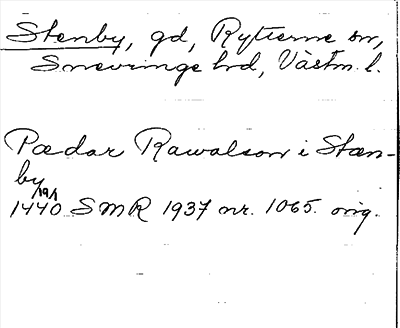 Stenby, gd, Rytterne sn,
Snevringe hd, Västm. l.
Pædar Rawalson i Stæn-
by
19/1
1440 SMR 1937 nr. 1065. orig.